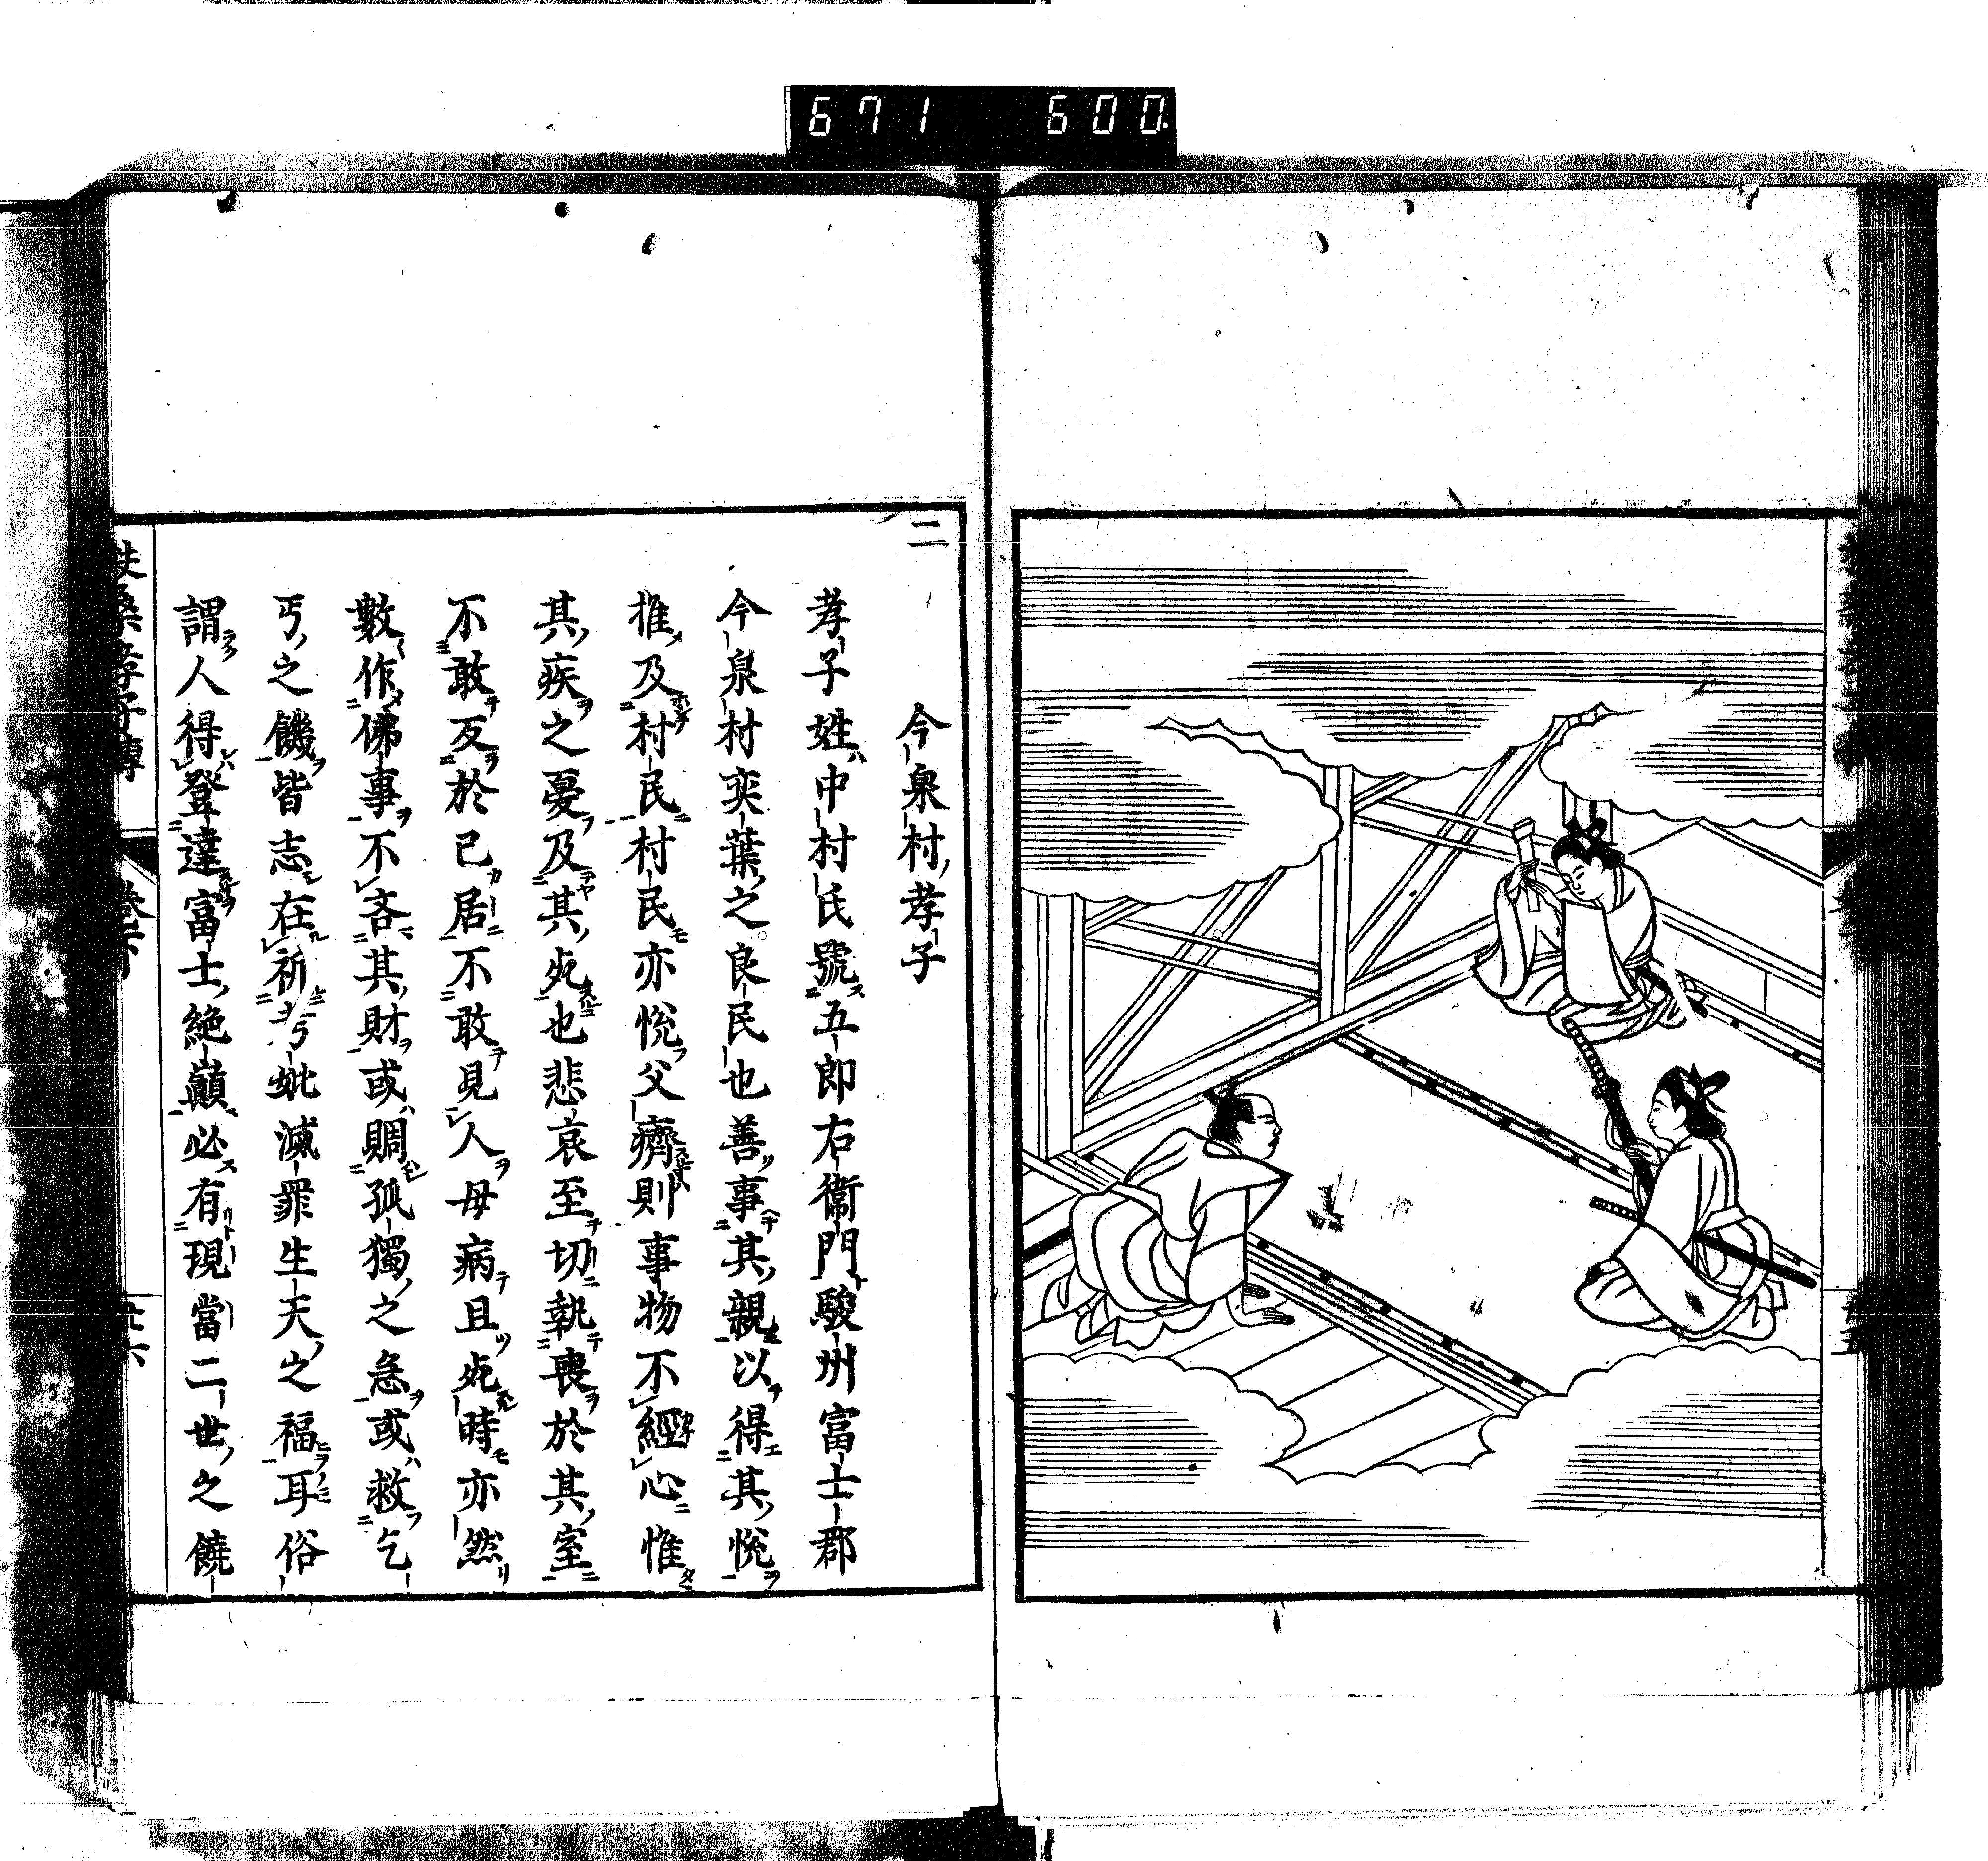 671 600
二
今泉村孝子
孝子姓中村氏號五郎右衞門駿州富士郡
今泉村奕葉之良民也善事其親以得其悅
推及村民村民亦悅父癠則事物不經心惟
其疾之憂及其死也悲哀至切執喪於其室
不敢反於己居不敢見人母病且死時亦然
數作佛事不吝其財或賙孤獨之急或救乞
丐之饑皆志在祈考妣滅罪生天之福耳俗
謂人得登達富士絶巓必有現當二世之饒
扶桑孝子傳 卷下